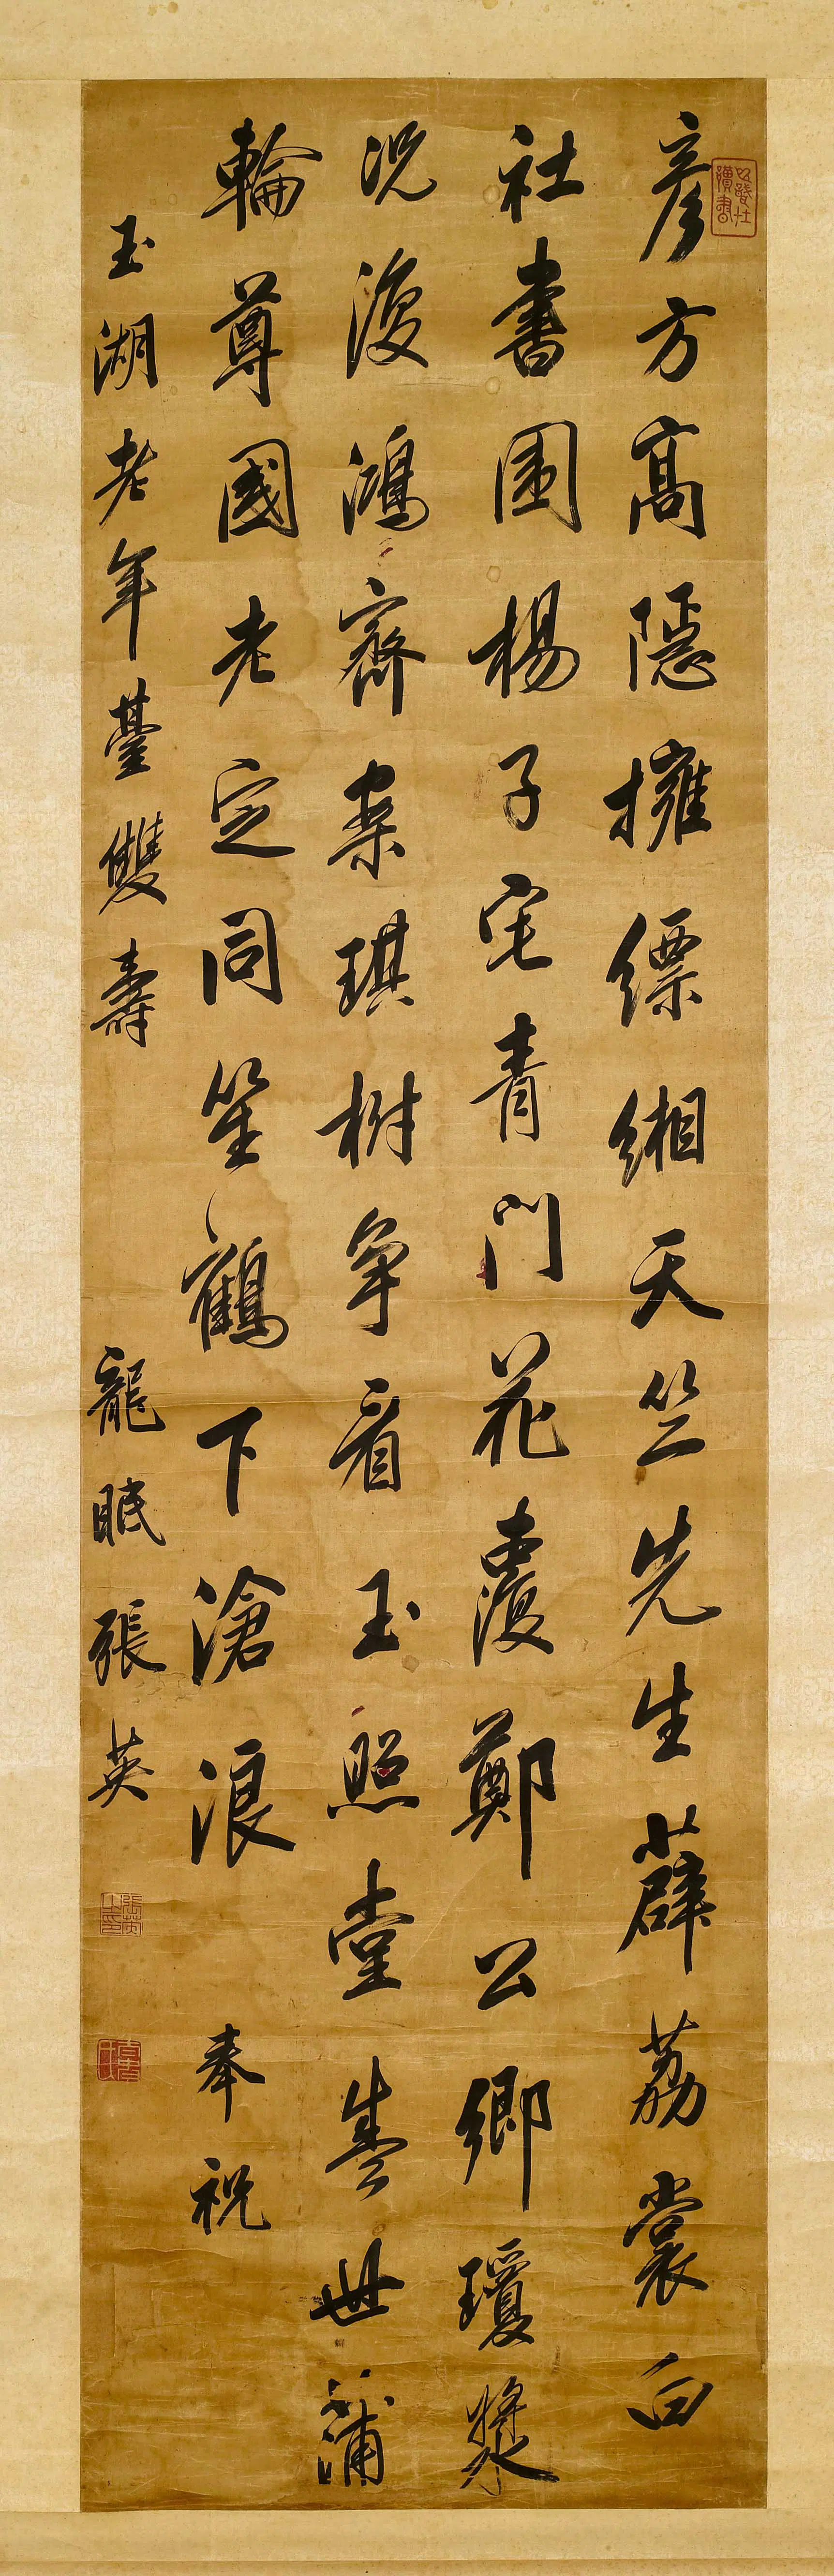 彥方高隱擁縹緗天竺先生薜荔裳白
社書圍楊子宅青門花覆鄭公鄉瓊漿
況復鴻齊案琪樹爭看玉照堂誉世蒲
輪尊國老定同笙鶴下滄浪 奉祝
玉湖老年臺雙壽 龍眠張英
張英之印